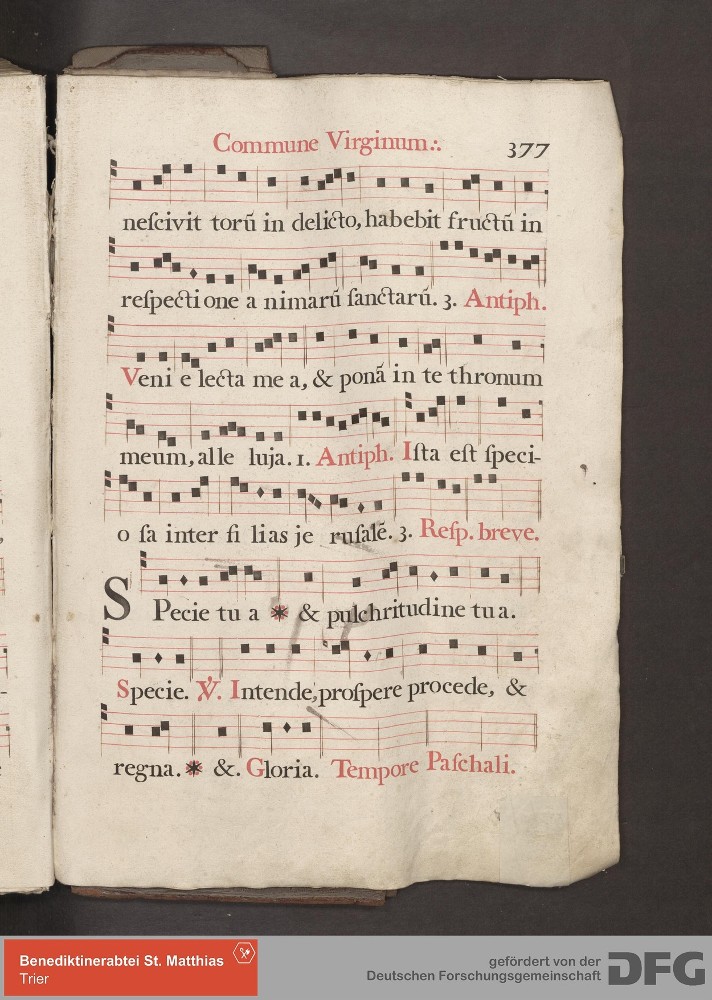 Commune Virginum∴
377
neſcivit torũ in delicto, habebit fructũ in
reſpecti one a nimarũ ſanctarũ. 3. Antiph.
Veni e lecta me a, & ponã in te thronum
meum, alle luja. 1. Antiph. Iſta eſt ſpeci-
o ſa inter fi lias je ruſalẽ. 3. Reſp. breve.
SPecie tu a ✴ & pulchritudine tua.
Specie. ℣. Intende, proſpere procede, &
regna. ✴ &. Gloria. Tempore Paſchali.
Benediktinerabtei St. Matthias
Trier
gefördert von der
Deutschen Forschungsgemeinschaft
DFG